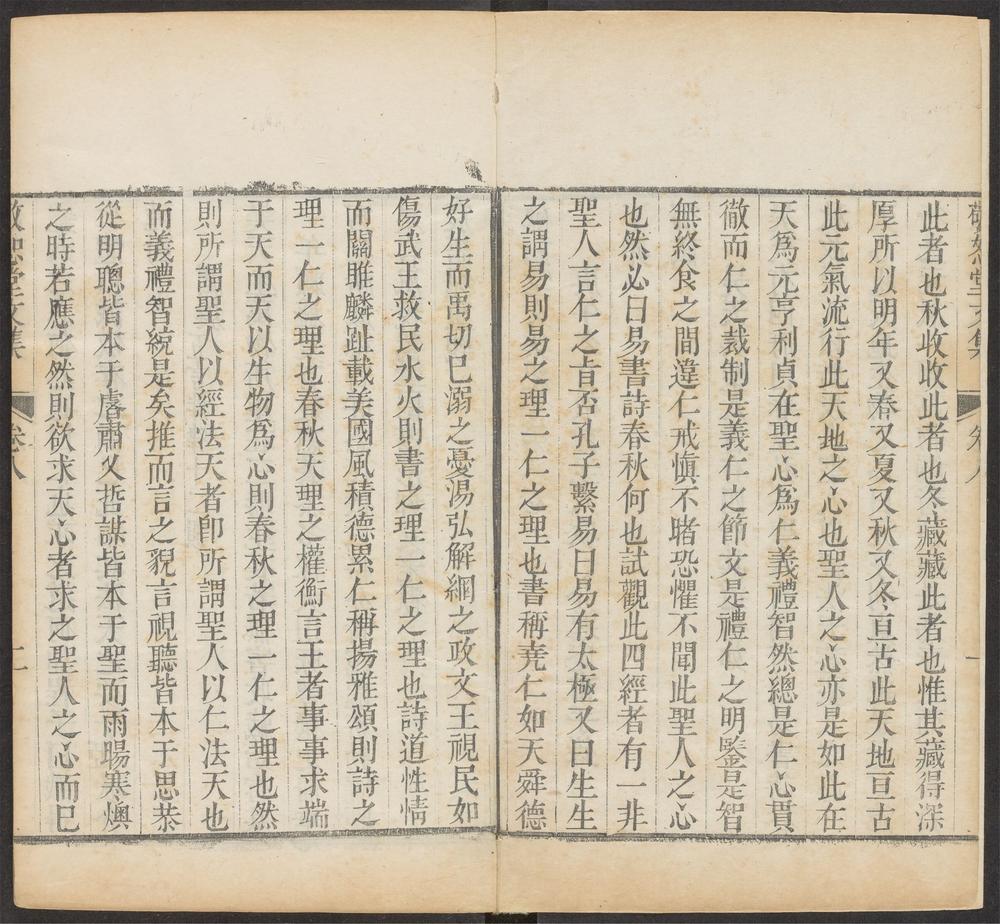 敬恕堂文集　卷八　一
此者也秋收收此者也冬藏藏此者也惟其藏得深
厚所以明年又春又夏又秋又冬亘古此天地亘古
此元氣流行此天地之心也聖人之心亦是如此在
天爲元亨利貞在聖心爲仁義禮智然總是仁心貫
徹而仁之裁制是義仁之節文是禮仁之明鑒是智
無終食之間違仁戒愼不睹恐懼不聞此聖人之心
也然必曰易書詩春秋何也試觀此四經者有一非
聖人言仁之旨否孔子繫易曰易有太極又曰生生
之謂易則易之理一仁之理也書稱堯仁如天舜德
好生而禹切巳溺之憂湯弘解網之政文王視民如
傷武王救民水火則書之理一仁之理也詩道性情
而關雎麟趾載美國風積德累仁稱揚雅頌則詩之
理一仁之理也春秋天理之權衡言王者事事求端
于天而天以生物爲心則春秋之理一仁之理也然
則所謂聖人以經法天者卽所謂聖人以仁法天也
而義禮智統是矣推而言之貌言視聽皆本于思恭
從明聰皆本于睿肅乂哲謀皆本于聖而雨暘寒燠
之時若應之然則欲求天心者求之聖人之心而巳
敬恕堂文集　卷八　二